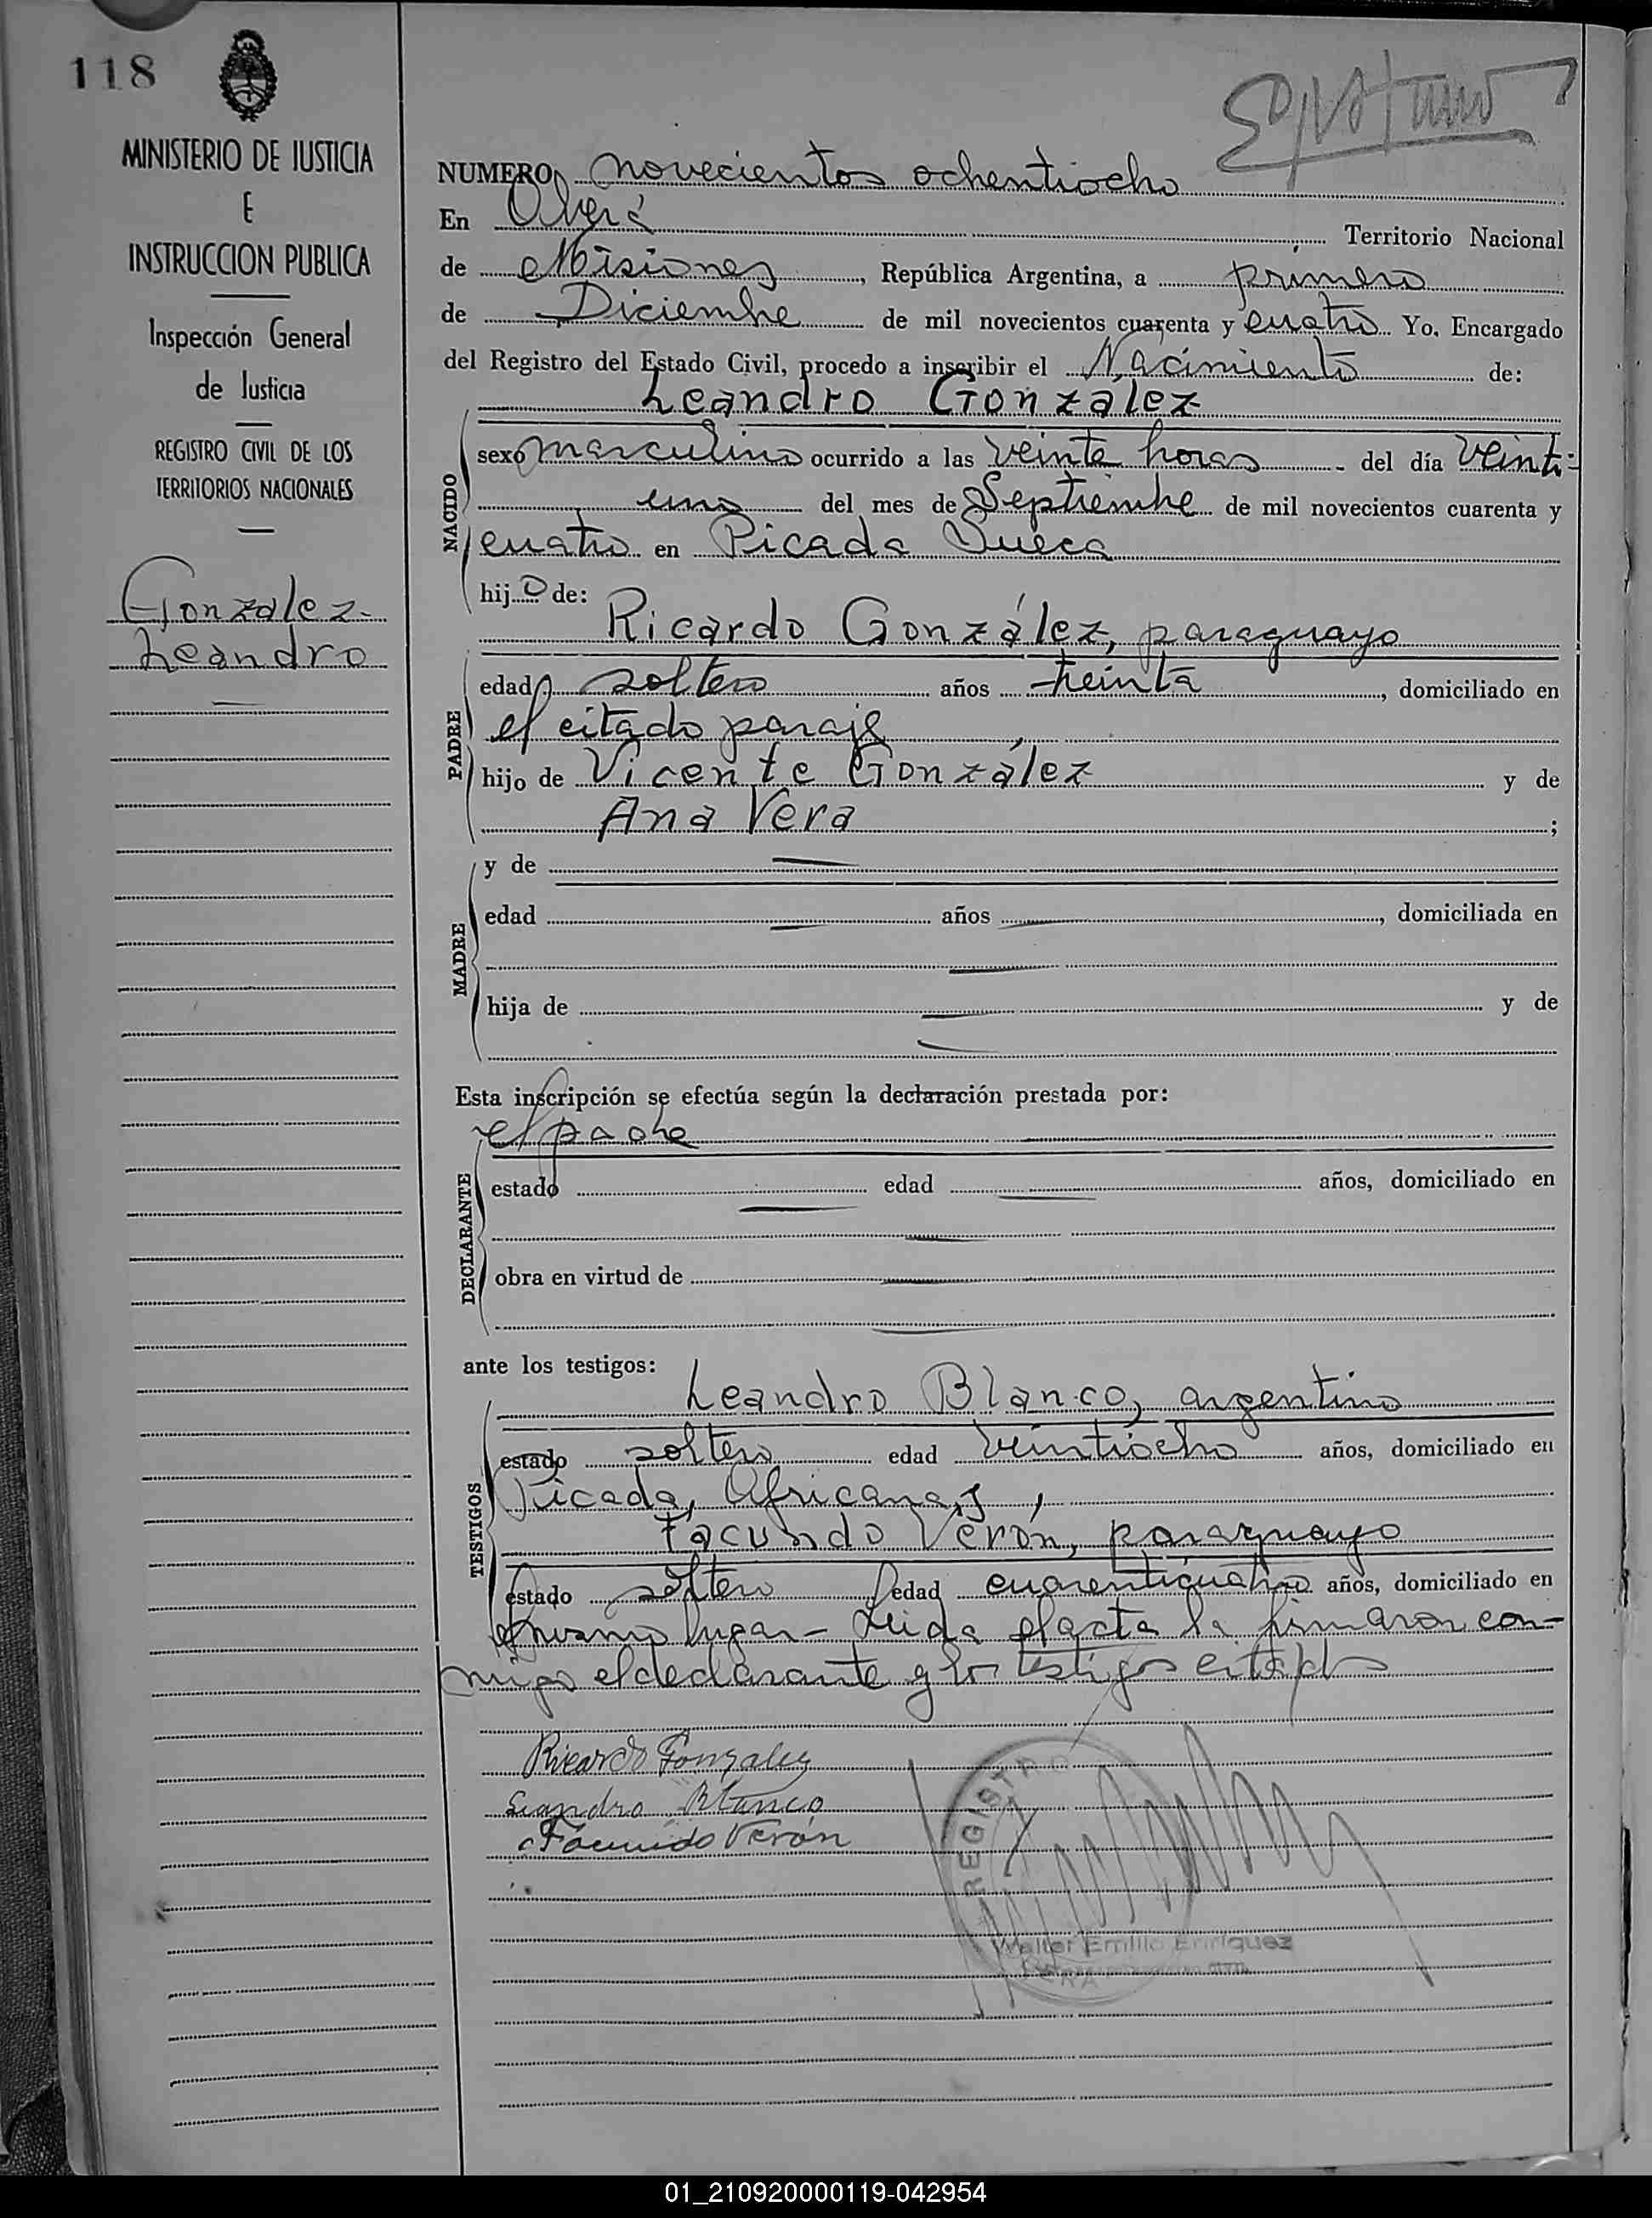 118
MINISTERIO DE JUSTICIA
E
INSTRUCCION PUBLICA
Inspección General
de Justicia
REGISTRO CIVIL DE LOS
TERRITORIOS NACIONALES
Gonzalez-
Leandro
NUMERO novecientos ochentiocho
En Oberá Territorio Nacional
de Misiones, República Argentina, a primero
de Diciembre de mil novecientos cuarenta y cuatro Yo, Encargado
del Registro del Estado Civil, procedo a inscribir el Nacimiento de:
Leandro González
NACIDO
sexo masculino ocurrido a las veinte horas - del día veinti-
uno del mes de Septiembre de mil novecientos cuarenta y
cuatro en Picada Sueca
hijo de:
Ricardo González, paraguayo
PADRE
edad soltero años treinta, domiciliado en
el citado paraje,
hijo de Vicente González y de
Ana Vera;
MADRE
y de
edad años, domiciliada en
hija de y de
Esta inscripción se efectúa según la declaración prestada por:
el padre
DECLARANTE
estado edad años, domiciliado en
obra en virtud de
ante los testigos:
Leandro Blanco, argentino
TESTIGOS
estado soltero edad veintiocho años, domiciliado en
Picada Africana, y
Facundo Verón, paraguayo
estado soltero edad cuarenticuatro años, domiciliado en
el mismo lugar- Leida el acta la firmaron con-
migo el declarante y los testigos citados
Ricardo Gonzalez
Leandro Blanco
Facundo Verón
REGISTRO
Walter Emilio Enriquez
01_210920000119-042954